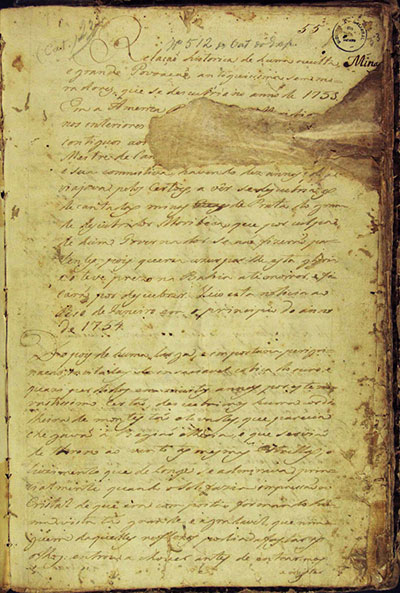 55
Nº 512
Minas
Relação historica de huma occulta,
e grande Povoação antiquissima sem mo-
radores, que se descubriu no anno de 1753.
Em a America
nos interiores
contiguos aos
Mestre de Can
e sua comitiva, havendo dez annos, que
viajava pelos Certões, a vêr se descubria as
decantadas minas de Prata do gran-
de descubridor Moribeca, que por culpa
de hum Governador se não fizerão pa-
tentes, pois queria uzurparlhe esta gloria
e o teve prezo na Bahia até morrer, e fi-
carão por descubrir. Veio esta noticia ao
Rio de Janeiro em o principio do anno
de 1754.
Depois de huma larga, e importuna perigri-
nação, incitados da insaciavel cobiça de ouro, e
quazi perdidos em muitos annos por este
vastissimo Certão, descobrimos huma cordi-
lheira de montes tão elevados, que parecia
chegavão a Região etherea, e que servião
de throno ao vento, as mesmas Estrellas; o
luzimento que de longe se admirava, prin-
cipalmente quando o Sol fazia impressão ao
Cristal de que era composta formando hu-
ma vista tão grande, e agradavel, que nin-
guem daquelles reflexos podia afastar os
olhos: entrou a chover antes de entrarmos